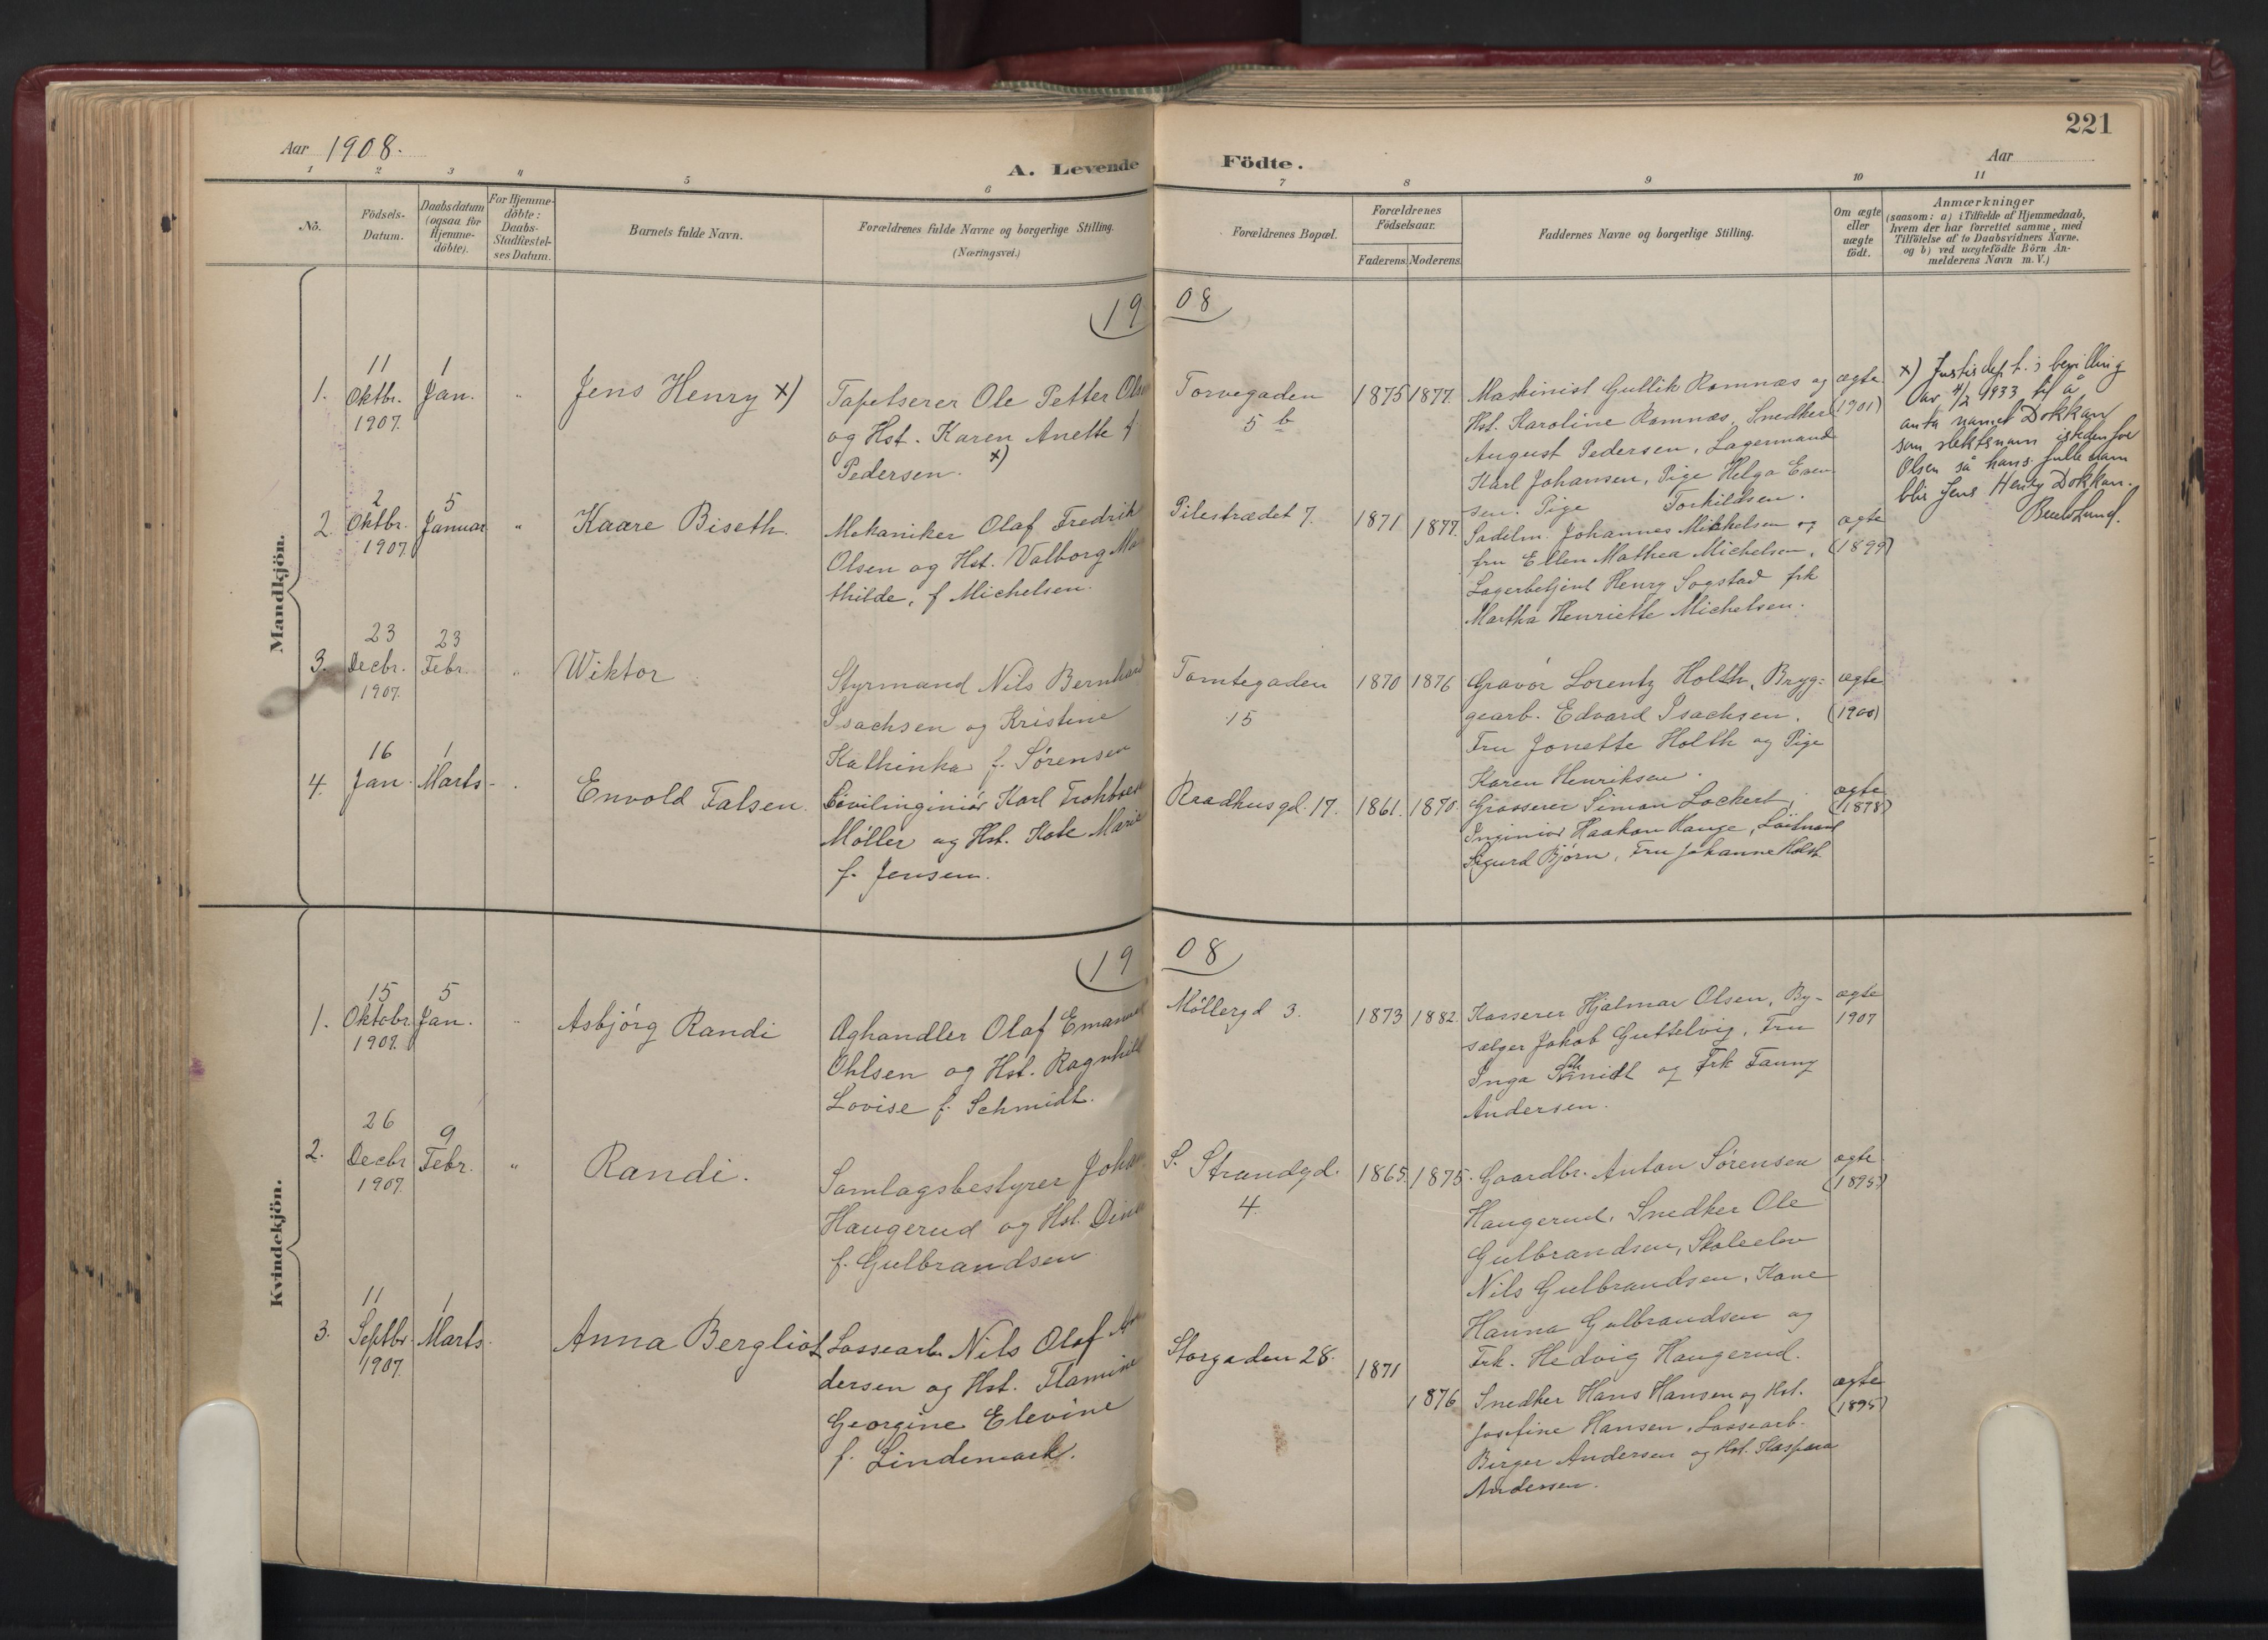 221
Aar 1908.
A. Levende Födte.
Aar
1 2 3 4 5 6 7 8 9 10 11
No.
Födsels-
Datum.
Daabsdatum
(ogsaa for
Hjemme-
döbte).
For Hjemme-
döbte:
Daabs-
Stadfæstel-
ses Datum.
Barnets fulde Navn.
Forældrenes fulde Navne og borgerlige Stilling.
(Næringsvei.)
Forældrenes Bopæl.
Forældrenes
Födselsaar.
Faderens. Moderens.
Faddernes Navne og borgerlige Stilling.
Om ægte
eller
uægte
födt.
Anmærkninger
(saasom: a) i Tilfælde af Hjemmedaab,
hvem der har forrettet samme, med
Tilföielse af to Daabsvidners Navne.
og b) ved uægtefödte Börn An-
melderens Navn m. V.)
Mandkjön.
1908
1.
11
Oktbr.
1907.
1
Jan.
"
Jens Henry x)
Tapetserer Ole Petter Olsen
og Hst. Karen Anette f
Pedersen. x)
Torvegaden
5 b
1875
1877.
Maskinist Gullik Ramnæs og
Hst. Karoline Ramnæs, Snedker
August Pedersen, Lagermand
Karl Johansen, Pige Helga Even-
sen. Pige Torkildsen.
ægte
(1901)
x) Justisdept.s bevilling
av 4/2 1933 til å
anta namnet Dokkan
som slektsnavn istedenfor
Olsen så hans fulle navn
blir Jens Henry Dokkan.
2.
2
Oktbr.
1907.
5
Januar
"
Kaare Biseth.
Mekaniker Olaf Fredrik
Olsen og Hst. Valborg Ma
thilde, f Michelsen.
Pilestrædet 7.
1871
1877.
Sadelm. Johannes Michelsen og
fru Ellen Mathea Michelsen,
Lagerbetjent Henry Sogstad frk
Martha Henriette Michelsen.
ægte
(1899)
3.
23
Decbr.
1907.
23
Febr.
"
Wiktor
Styrmand Nils Bernhard
Isachsen og Kristine
Kathinka f. Sørensen
Tomtegaden
15
1870
1876
Gravör Lorentz Holth, Bryg-
gearb. Edvard Isachsen.
Fru Jonette Holth og Pige
Karen Henriksen.
ægte
(1900)
4.
16
Jan.
1
Marts
"
Envold Falsen.
Civilinginiör Karl
Møller og Hst. Kate Marie
f. Jensen.
Raadhusgd. 17.
1861.
1870.
Grosserer Simon Lockert,
Inginiör Haakon Hauge, Löitnant
Sigurd Björn, Fru Johanne Holst
ægte
(1878)
Kvindekjön.
1908
1.
15
Oktobr.
1907.
5
Jan.
"
Asbjörg Randi
Æghandler Olaf Emanuel
Ohlsen og Hst. Ragnhild
Lovise f. Schmidt.
Möllergd 3.
1873
1882.
Kasserer Hjalmar Olsen, By-
sælger Jakob Guttelvig, Fru
Inga Schmidt og Frk Fanny
Andersen.
ægte
1907
2.
26
Decbr
1907.
9
Febr.
"
Randi.
Samlagsbestyrer Johan
Haugerud og Hst. Dina
f. Gulbrandsen
S. Strandgd.
4.
1865.
1875.
Gaardbr. Anton Sørensen
Haugerud. Snedker Ole
Gulbrandsen, Skoleelev
Nils Gulbrandsen, Kone
Hanna Gulbrandsen og
Frk. Hedvig Haugerud.
ægte
(1895)
3.
11
Septbr.
1907.
1
Marts.
Anna Bergliot
Lossearb. Nils Olaf An
dersen og Hst. Flamine
Georgine Elevine
f. Lindemark.
Storgaden 28.
1871
1876
Snedker Hans Hansen og Hst.
Josefine Hansen, Lossearb.
Birger Andersen og Hst. Kaspara
Andersen.
ægte
(1895)